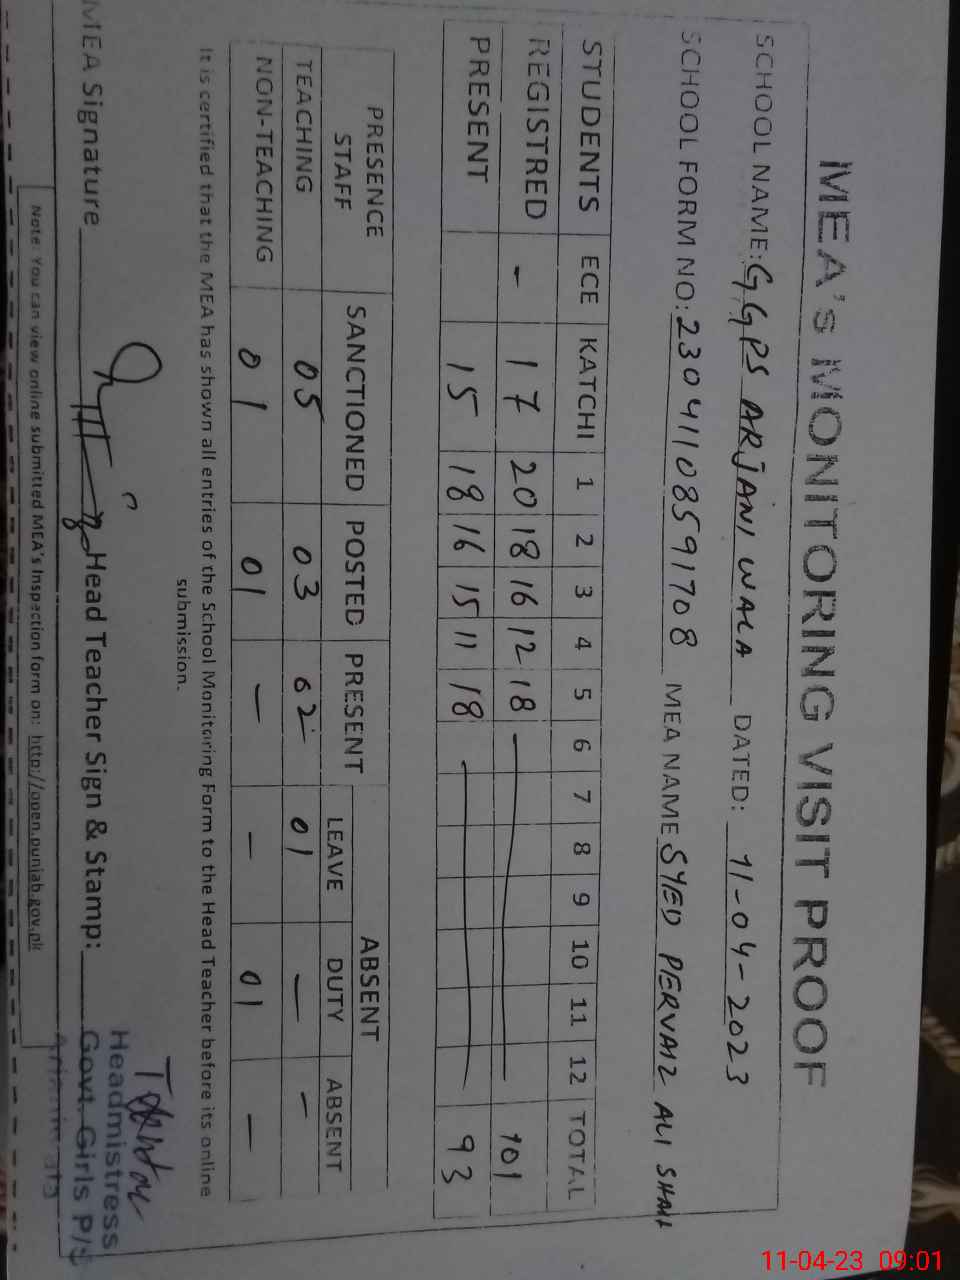 MEA's MONITORING VISIT PROOF
SCHOOL NAME: GGPS ARJANI WALA DATED: 11-04-2023
SCHOOL FORM NO: 23041108591708 MEA NAME SYED PERVAIZ ALI SHAH
STUDENTS ECE KATCHI 1 2 3 4 5 6 7 8 9 10 11 12 TOTAL
REGISTRED - 17 20 18 16 12 18 101
PRESENT 15 18 16 15 11 18 93
PRESENCE STAFF SANCTIONED POSTED PRESENT ABSENT
LEAVE DUTY ABSENT
TEACHING 05 03 02 01 - -
NON-TEACHING 01 01 - - 01 -
It is certified that the MEA has shown all entries of the School Monitoring Form to the Head Teacher before its online
submission.
MEA Signature Head Teacher Sign & Stamp:
Headmistress
Govt. Girls P/S
Note: You can view online submitted MEA's Inspection form on: http://open.punjab.gov.pk
11-04-23 09:01